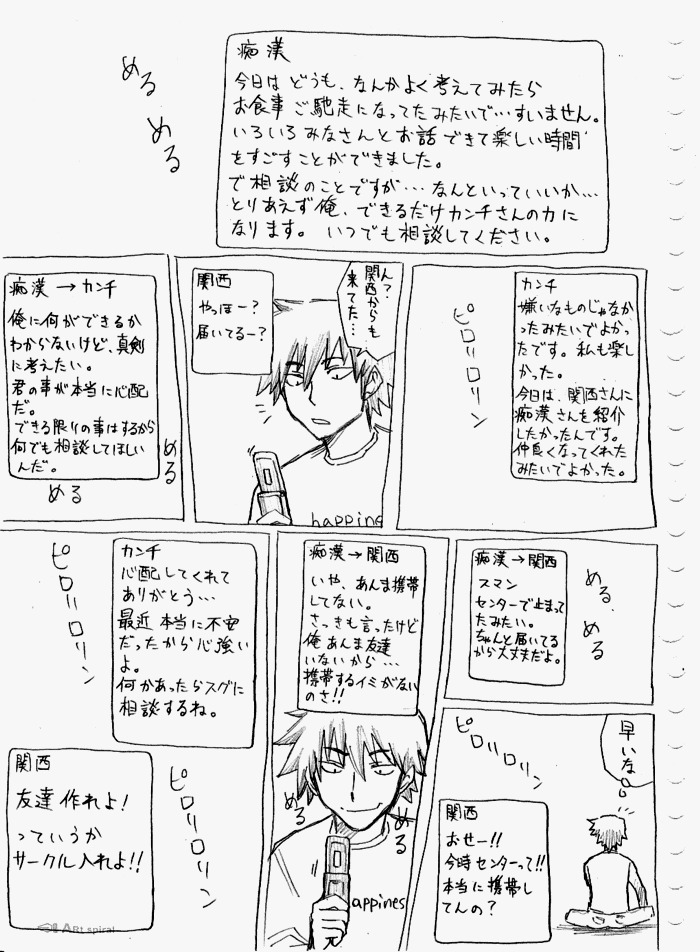 めるめる
痴漢
今日は どうも、なんかよく考えてみたら
お食事ご馳走になってたみたいで…すいません。
いろいろみなさんとお話できて楽しい時間
をすごすことができました。
で相談のことですが…なんといっていいか…
とりあえず俺、できるだけカンチさんの力に
なります。 いつでも相談してください。
カンチ
嫌いなものじゃなか
ったみたいでよかっ
たです。私も楽し
かった。
今日は、関西さんに
痴漢さんを紹介
したかったんです。
仲良くなってくれた
みたいでよかった。
ピロリロリン
ん？
関西からも
来てた…
関西
やっほー？
届いてるー？
happines
痴漢→カンチ
俺に何ができるか
わからないけど、真剣
に考えたい。
君の事が本当に心配
だ。
できる限りの事はするから
何でも相談してほしい
んだ。
める
める
痴漢→関西
スマン
センターで止まって
たみたい。
ちゃんと届いてる
から大丈夫だよ。
める、める
痴漢→関西
いや、あんま携帯
してない。
さっきも言ったけど
俺あんま友達
いないから…
携帯するイミがない
のさ!!
める
める
appines
カンチ
心配してくれて
ありがとう…
最近本当に不安
だったから心強い
よ。
何かあったらスグに
相談するね。
ピロリロリン
早いな。
ピロリロリン
関西
おせー!!
今時センターって!!
本当に携帯し
てんの？
ピロリロリン
関西
友達作れよ！
っていうか
サークル入れよ!!
ARt spiral